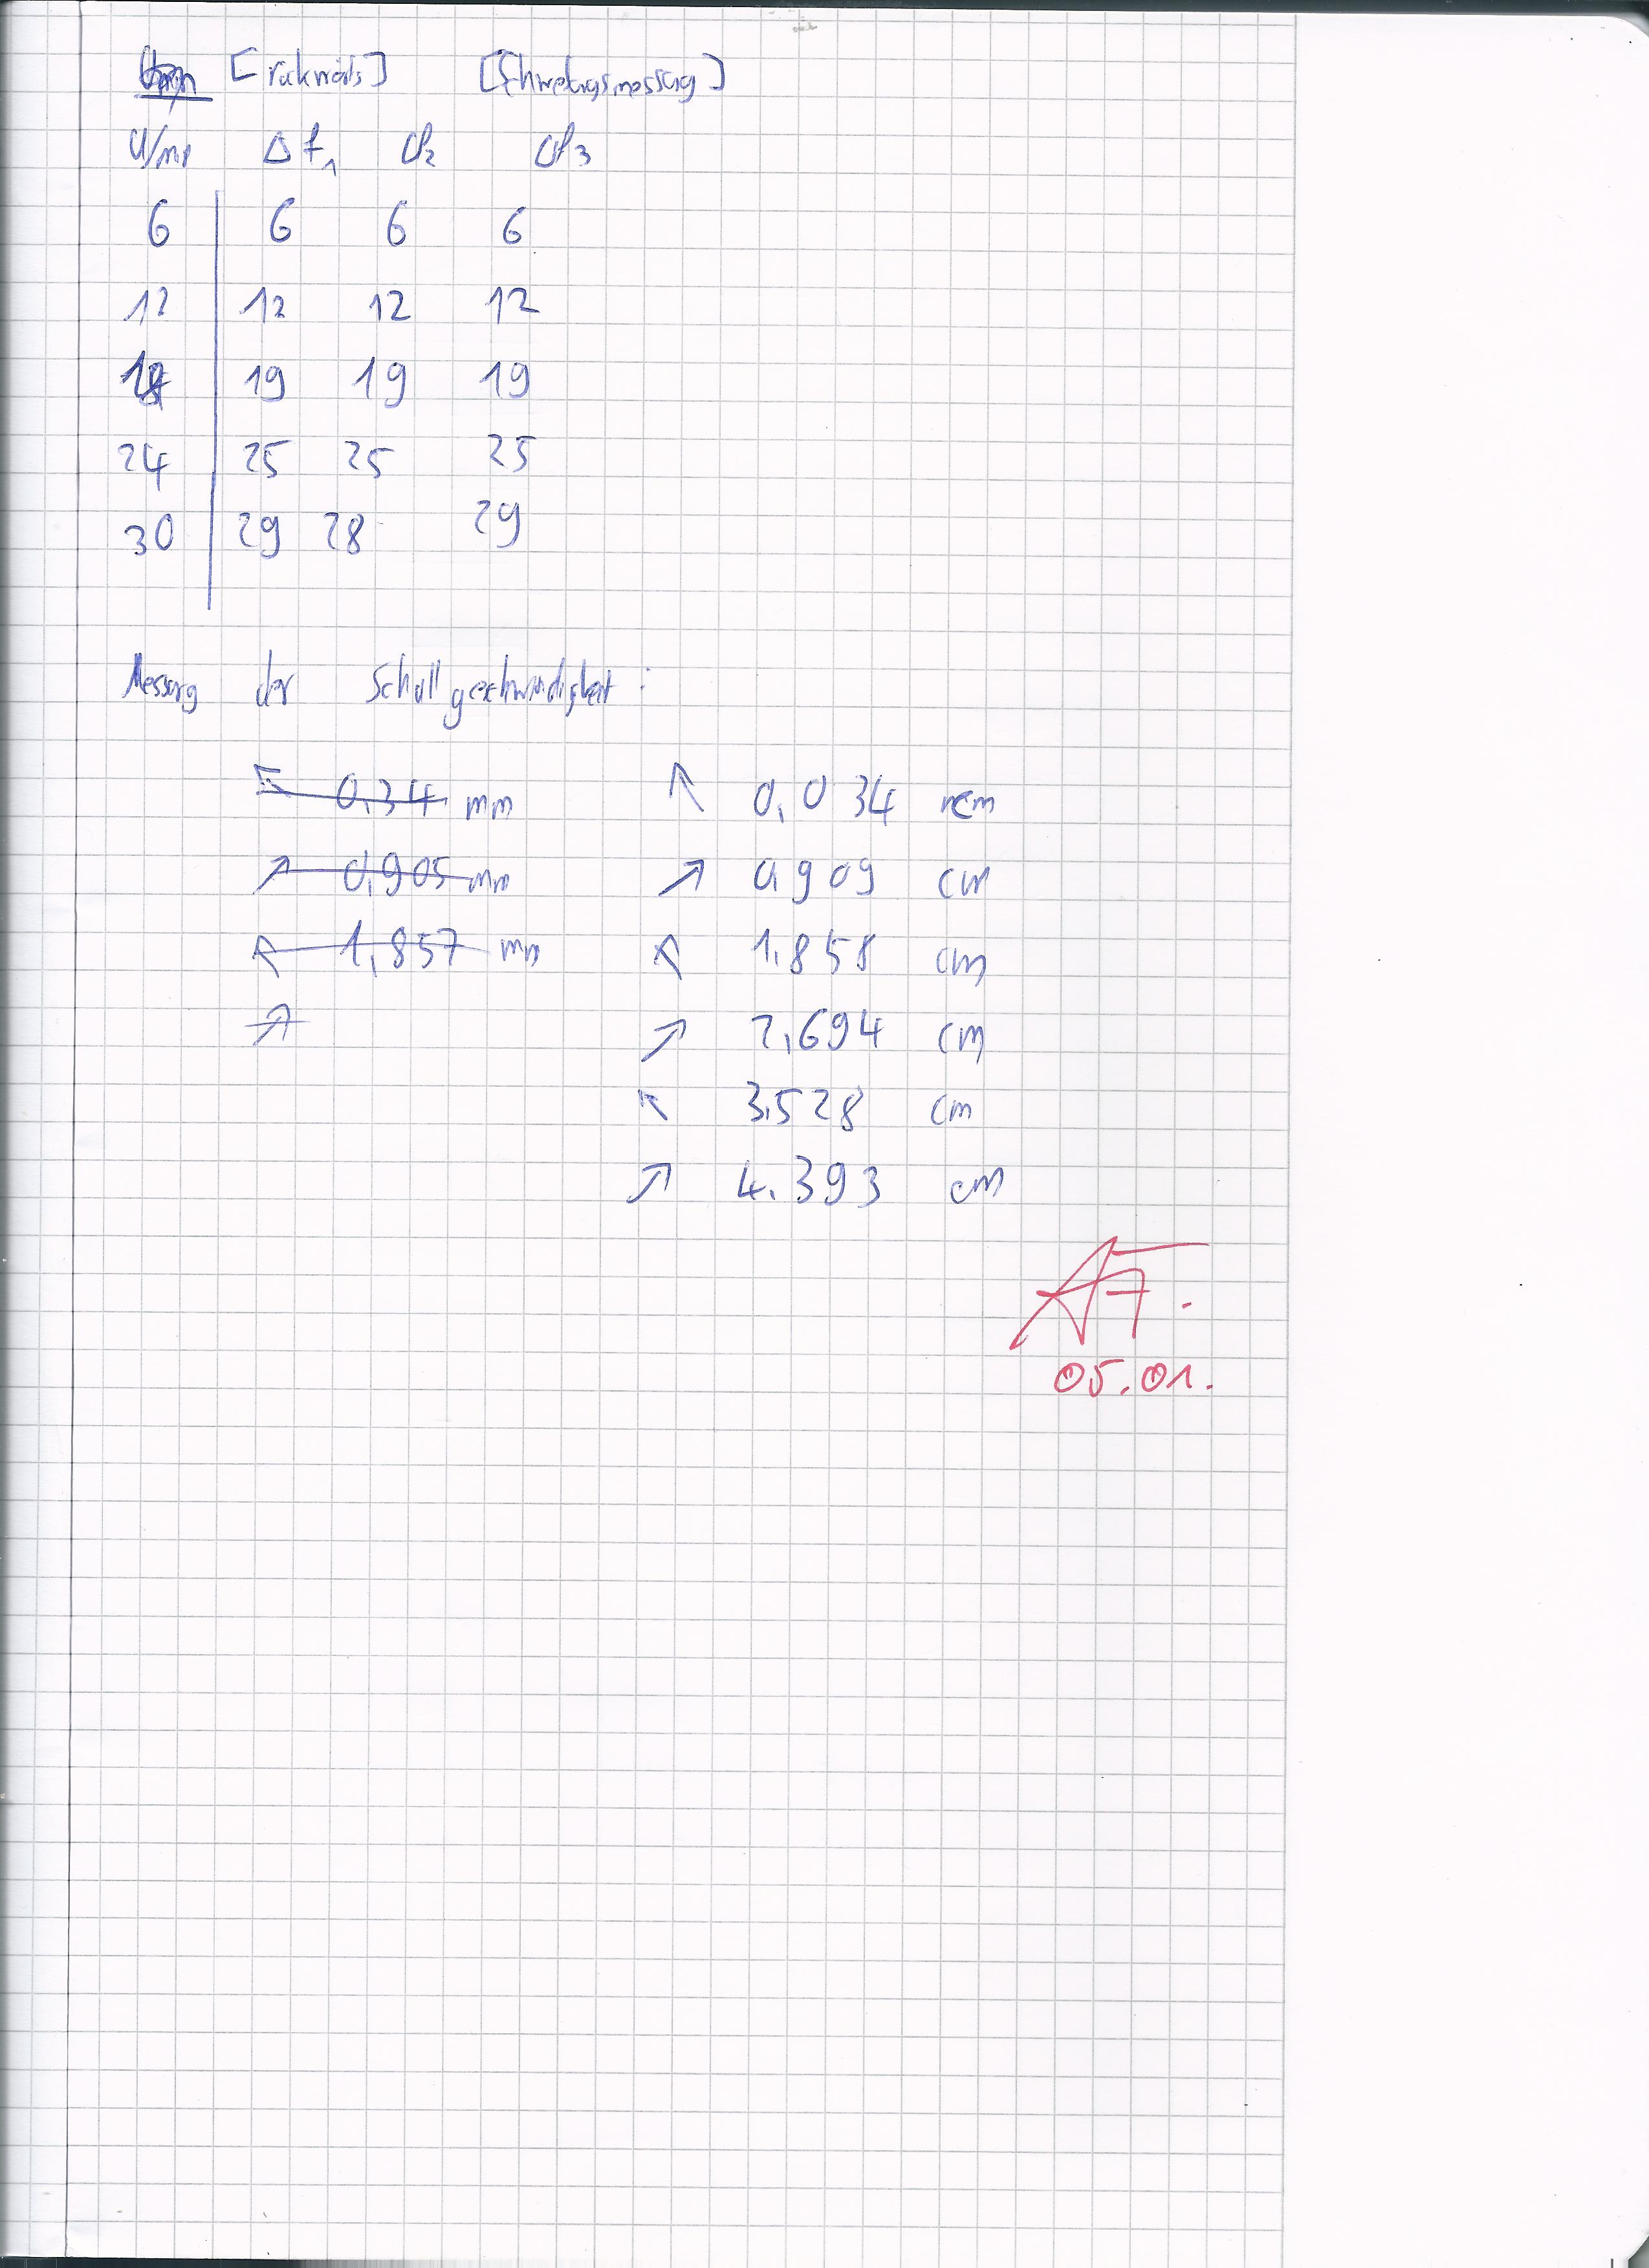 [rückwärts] [Schwebungsmessung]
U/min Δf₁ Δf₂ Δf₃
6 6 6 6
12 12 12 12
18 19 19 19
24 25 25 25
30 29 28 29
Messung der Schallgeschwindigkeit:
↖ 0,34 mm ↖ 0,034 cm
↗ 0,905 mm ↗ 0,909 cm
↖ 1,857 mm ↖ 1,858 cm
↗ ↗ 2,694 cm
↖ 3,528 cm
↗ 4,393 cm
05.01.